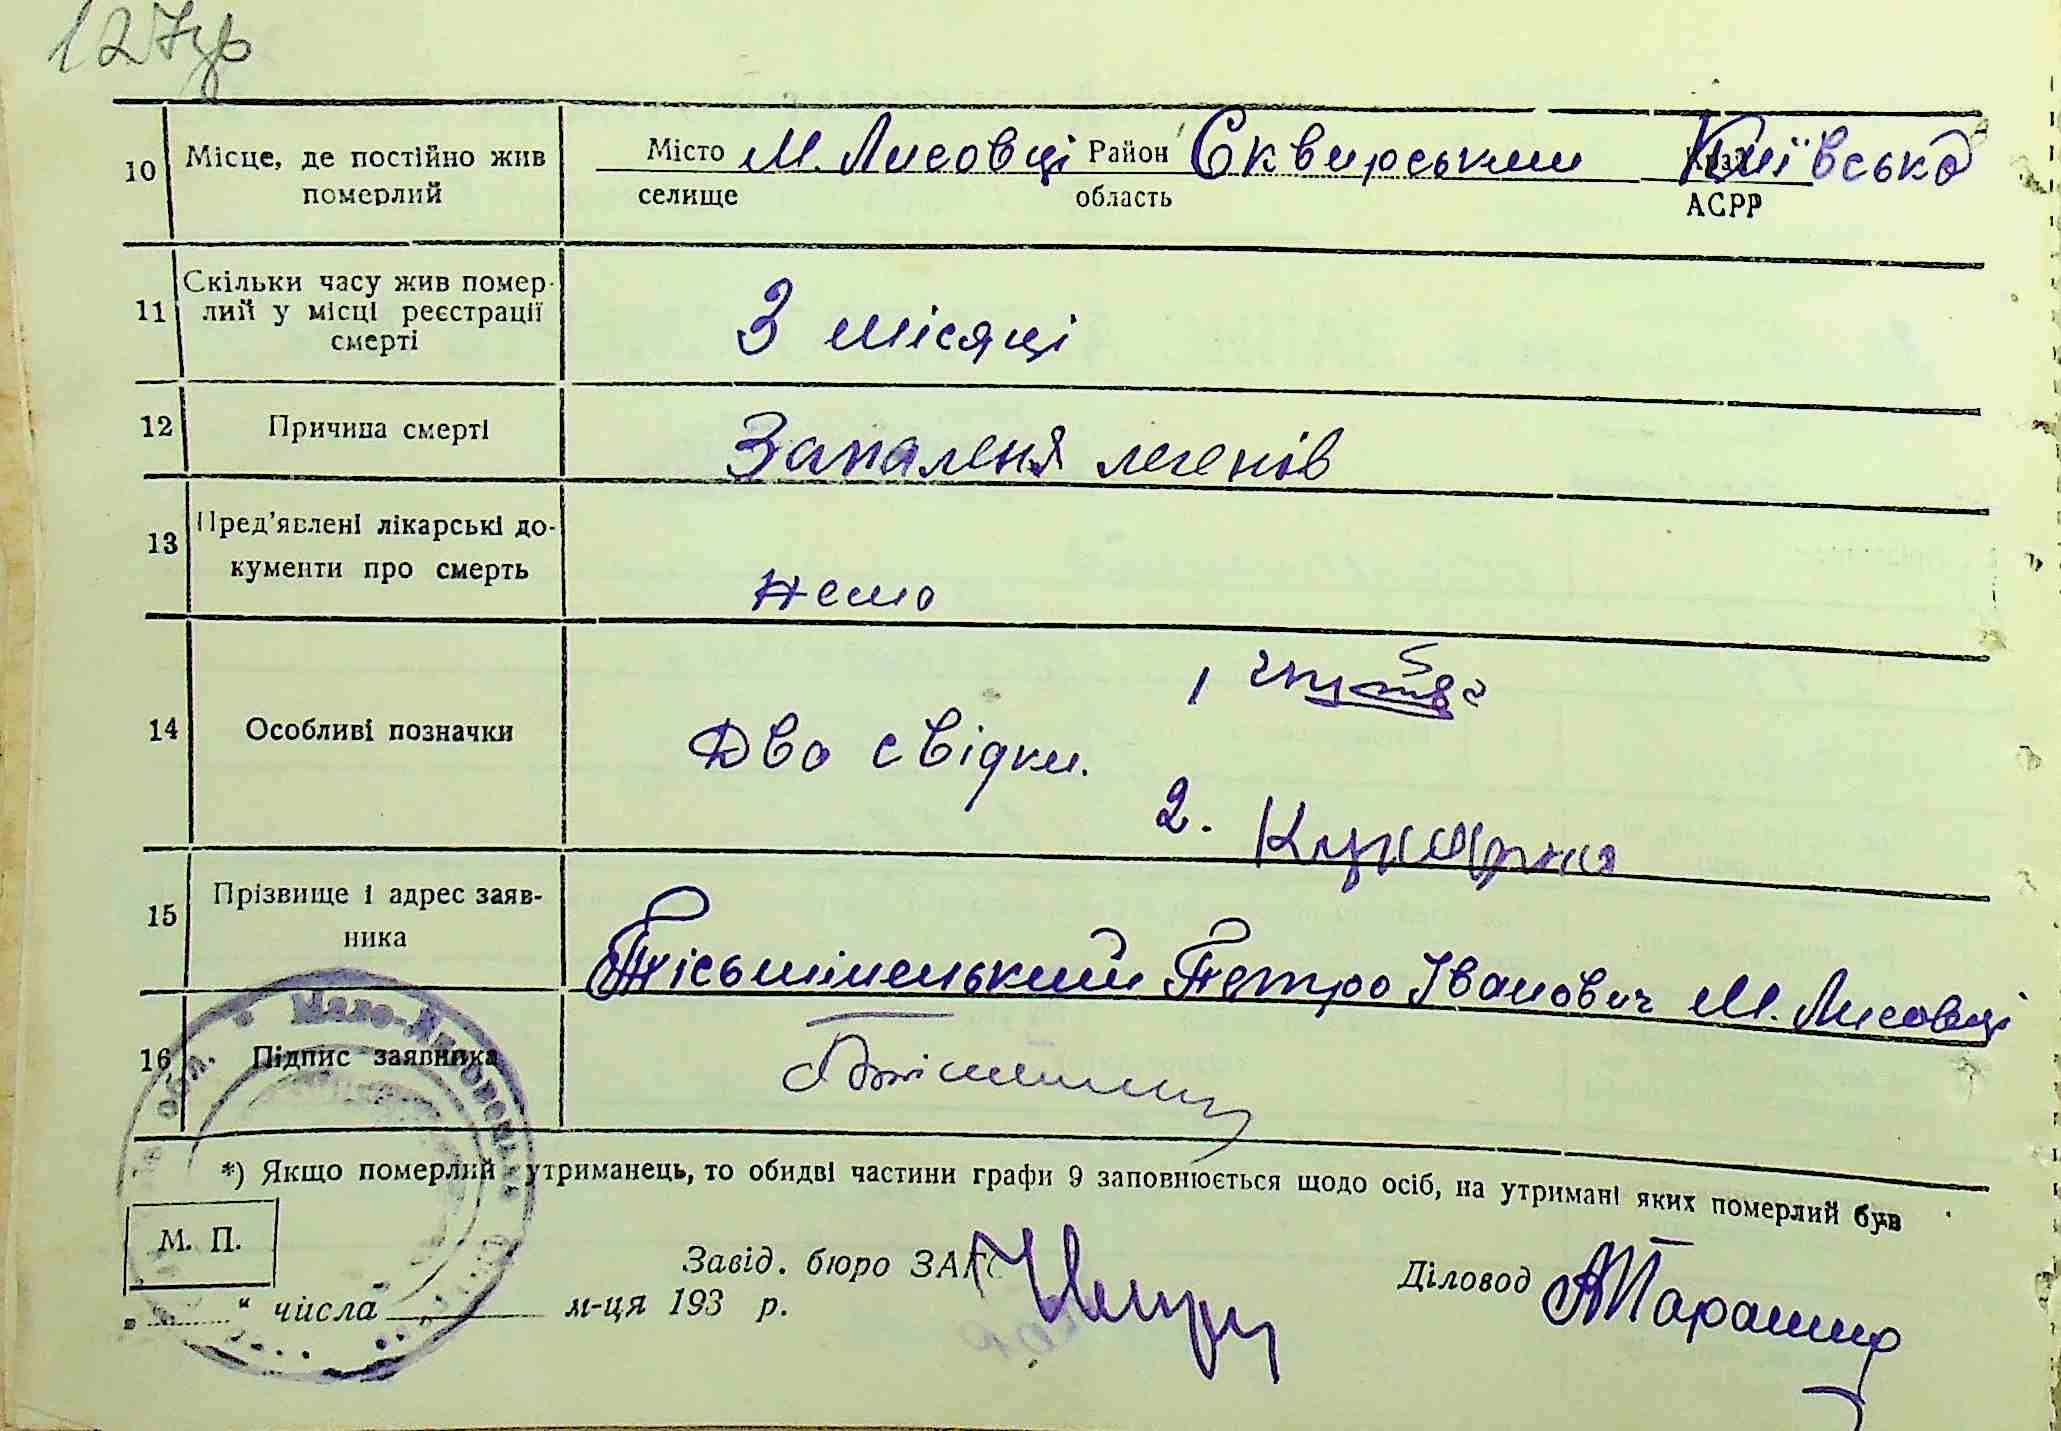 10 Місце, де постійно жив померлий
Місто М. Лисовці Район Сквирський Київська
селище область АСРР
11 Скільки часу жив помер-
лий у місці реєстрації
смерті
3 місяці
12 Причина смерті Запаленя легенів
13 Пред'явлені лікарські до-
кументи про смерть
нема
14 Особливі позначки
1
Два свідки.
2.
15 Прізвище і адрес заяв-
ника
Пісьмінецький Петро Іванович М. Лисовці
16 Підпис заявника
*) Якщо померлий утриманець, то обидві частини графи 9 заповнюється щодо осіб, на утримані яких померлий був
М. П.
Завід. бюро ЗАГС
Діловод
" числа м-ця 193 р.